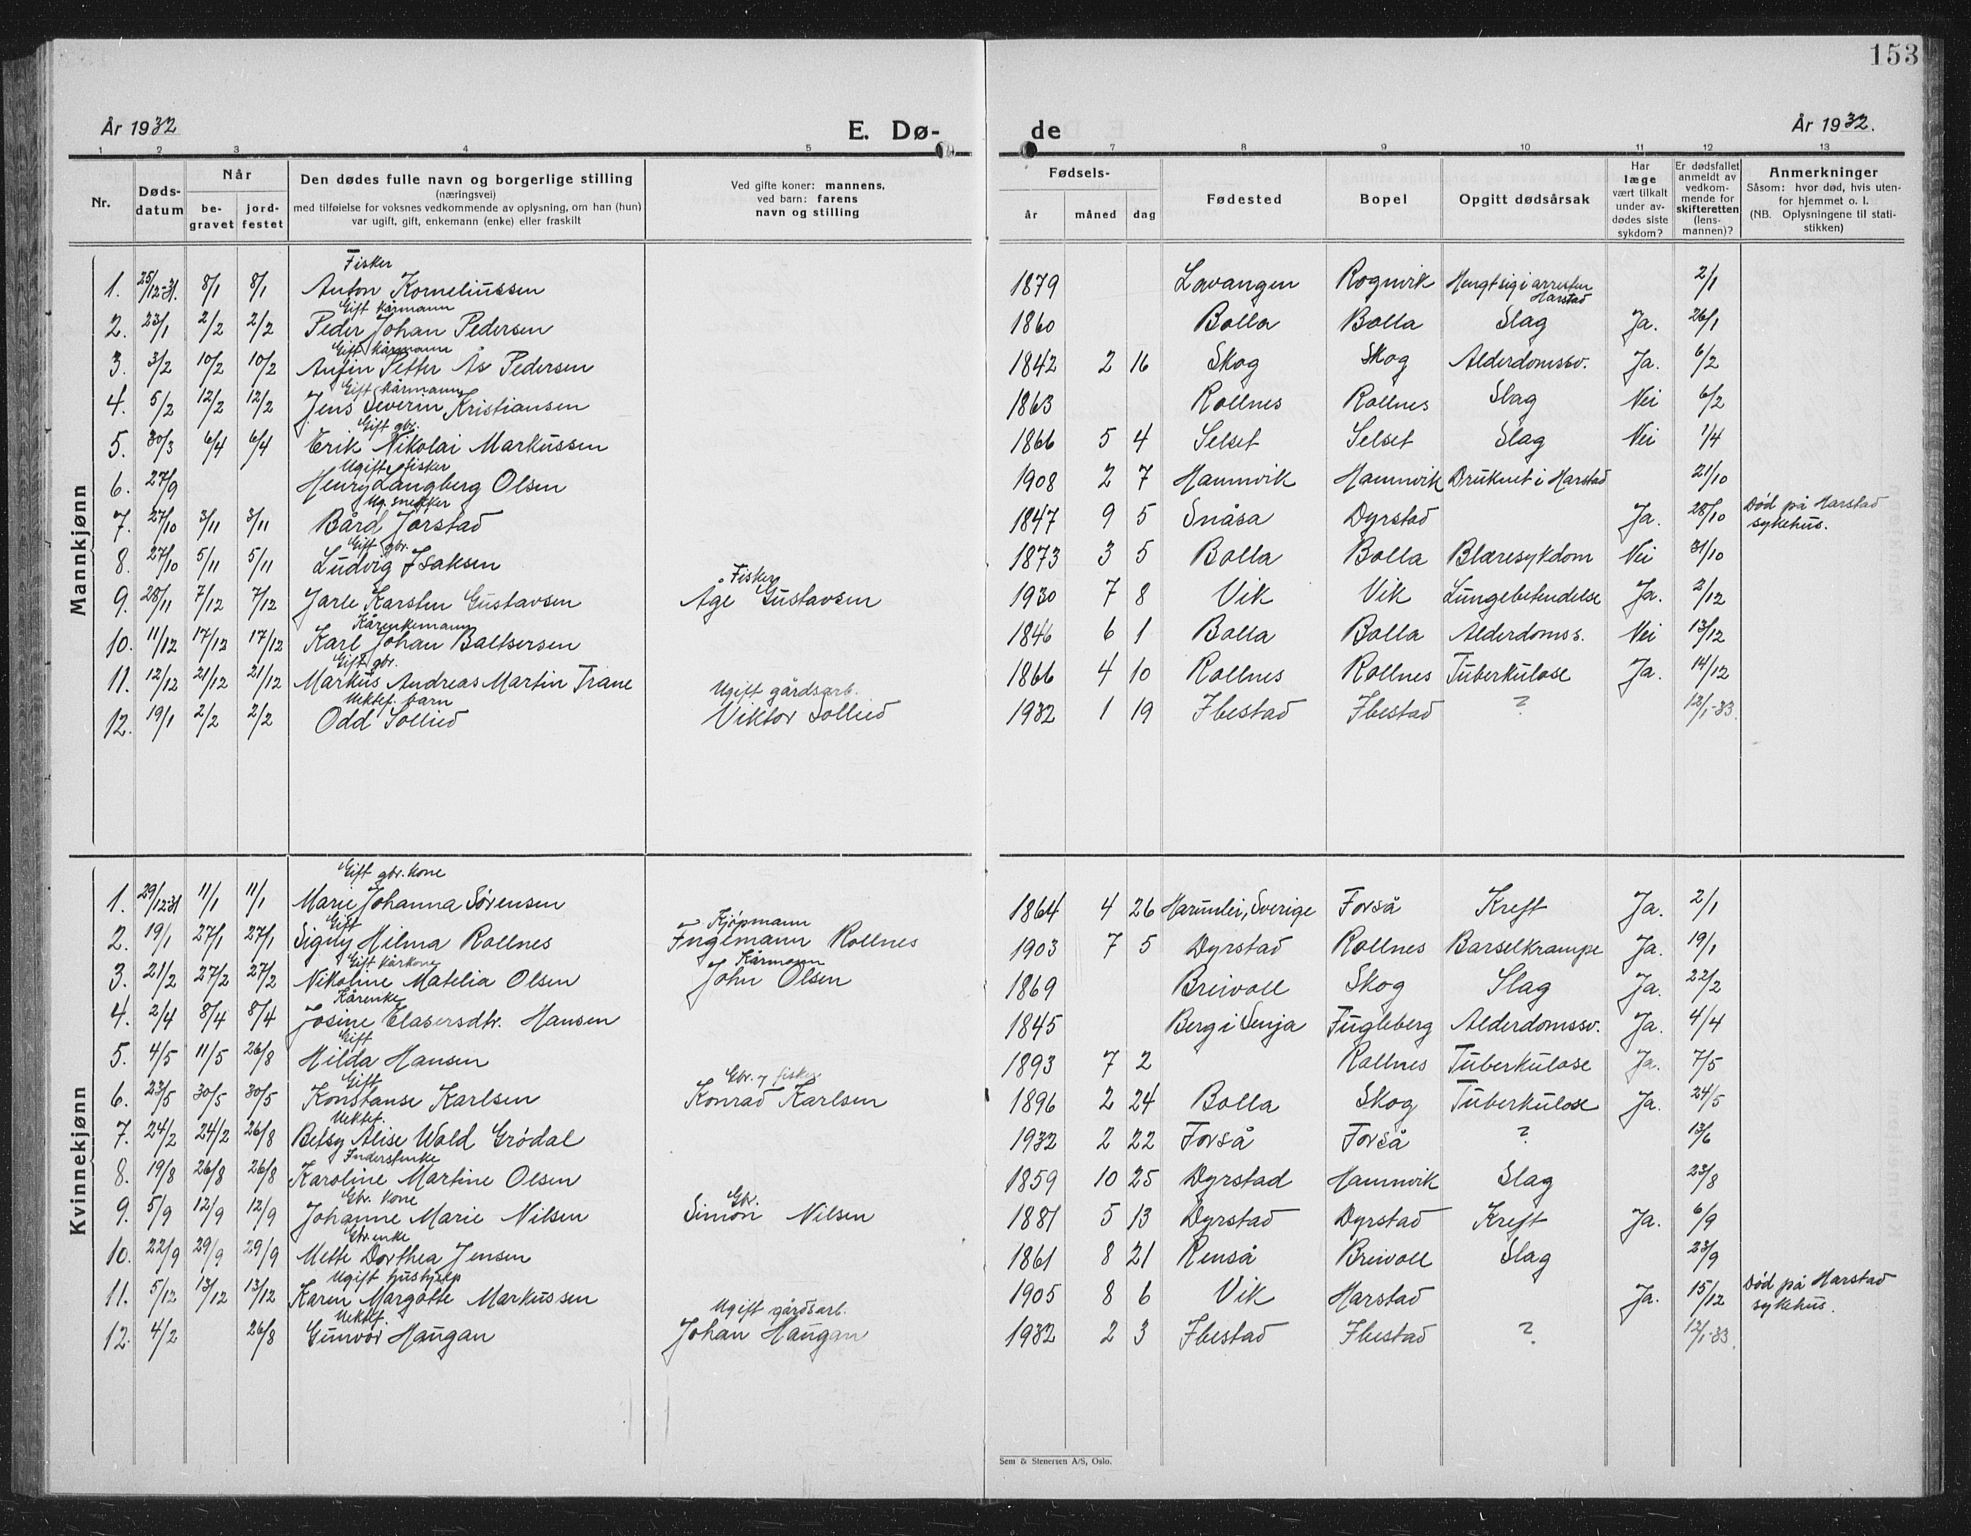 153
År 1932 E. Dø- de År 1932.
1 2 3 4 5 7 8 9 10 11 12 13
Nr. Døds-datum Når be-gravet jord-festet Den dødes fulle navn og borgerlige stilling (næringsvei) med tilføielse for voksnes vedkommende av oplysning, om han (hun) var ugift, gift, enkemann (enke) eller fraskilt Ved gifte koner: mannens, ved barn: farens navn og stilling Fødsels- år måned dag Fødested Bopel Opgitt dødsårsak Har læge vært tilkalt under av-dødes siste sykdom? Er dødsfallet anmeldt av vedkom-mende for skifteretten (lens-mannen)? Anmerkninger Såsom: hvor død, hvis uten-for hjemmet o. l. (NB. Oplysningene til stati-stikken)
Mannkjønn
Fisker
1. 25/12-31. 8/1 8/1 Anton Korneliussen 1879 Lavangen Rognvik Hengt sig i arresten Harstad 2/1
Gift kårmann
2. 23/1 2/2 2/2 Peder Johan Pedersen 1860 Bolla Bolla Slag Ja. 26/1
Gift kårmann
3. 3/2 10/2 10/2 Anfin Petter As Pedersen 1842 2 16 Skog Skog Alderdomssv. Ja. 6/2
Gift kårmann
4. 5/2 12/2 12/2 Jens Severin Kristiansen 1863 Rollnes Rollnes Slag Nei 6/2
Gift gbr.
5. 30/3 6/4 6/4 Erik Nikolai Markussen 1866 5 4 Selset Selset Slag Nei 1/4
Ugift fisker
6. 27/9 Henry Langberg Olsen 1908 2 7 Hamnvik Hamnvik Druknet i Harstad 21/10
Ug. snekker
7. 27/10 3/11 3/11 Bård Jørstad 1847 9 5 Snåsa Dyrstad Ja. 28/10 Død på Harstad sykehus.
Gift gbr.
8. 27/10 5/11 5/11 Ludvig Isaksen 1873 3 5 Bolla Bolla Blæresykdom Nei 31/10
Fisker
9. 28/11 7/12 7/12 Jarle Karsten Gustavsen Åge Gustavsen 1930 7 8 Vik Vik Lungebetendelse Ja. 2/12
Kårenkemann
10. 11/12 17/12 17/12 Karl Johan Baltsersen 1846 6 1 Bolla Bolla Alderdomss. Nei 13/12
Gift gbr.
11. 12/12 21/12 21/12 Markus Andreas Martin Trane 1866 4 10 Rollnes Rollnes Tuberkulose Ja. 14/12
Uektef. barn Ugift gårdsarb.
12. 19/1 2/2 2/2 Odd Sollied Viktor Sollied 1932 1 19 Ibestad Ibestad ? 12/1-33.
Kvinnekjønn
Gift gbr. kone
1. 29/12-31 11/1 11/1 Marie Johanna Sørensen 1864 4 26 Sverige Forså Kreft Ja. 2/1
Gift Kjøpmann
2. 19/1 27/1 27/1 Signy Hilma Rollnes Ingemann Rollnes 1903 7 5 Dyrstad Rollnes Barselkrampe Ja. 19/1
Gift kårkone Kårmann
3. 21/2 27/2 27/2 Nikoline Matelia Olsen John Olsen 1869 Breivoll Skog Slag Ja. 22/2
Kårenke
4. 2/4 8/4 8/4 Josine Elasersdtr. Hansen 1845 Berg i Senja Fugleberg Alderdomssv. Ja. 4/4
Gift
5. 4/5 11/5 26/8 Hilda Hansen 1893 7 2 Rollnes Tuberkulose Ja. 7/5
Gift Gbr. og fisker
6. 23/5 30/5 30/5 Konstanse Karlsen Konrad Karlsen 1896 2 24 Bolla Skog Tuberkulose Ja. 24/5
Uektef.
7. 24/2 24/2 26/8 Betsy Alise Wold Grødal 1932 2 22 Forså Forså ? 13/6
Inderstenke
8. 19/8 26/8 26/8 Karoline Martine Olsen 1859 10 25 Dyrstad Hamnvik Slag 23/8
Gbr. kone Gbr.
9. 5/9 12/9 12/9 Johanne Marie Nilsen Simon Nilsen 1881 5 13 Dyrstad Dyrstad Kreft Ja. 6/9
Gbr. enke
10. 22/9 29/9 29/9 Mette Dorthea Jensen 1861 8 21 Renså Breivoll Slag 23/9
Ugift hushjelp
11. 5/12 13/12 13/12 Karen Margotte Markussen 1905 8 6 Vik Harstad Ja. 15/12 Død på Harstad sykehus.
Uektef. Ugift gårdsarb.
12. 4/2 26/8 Gunvor Haugan Johan Haugan 1932 2 3 Ibestad Ibestad ? 12/1-33.
Sem & Stenersen A/S, Oslo.